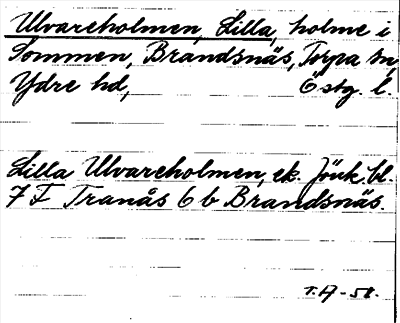 Ulvareholmen, Lilla, holme i
Sommen, Brandsnäs, Torpa sn,
Ydre hd, Östg. l.
Lilla Ulvareholmen, ek. Jönk. bl.
7 F Tranås 6 b Brandsnäs.
T.A-58.